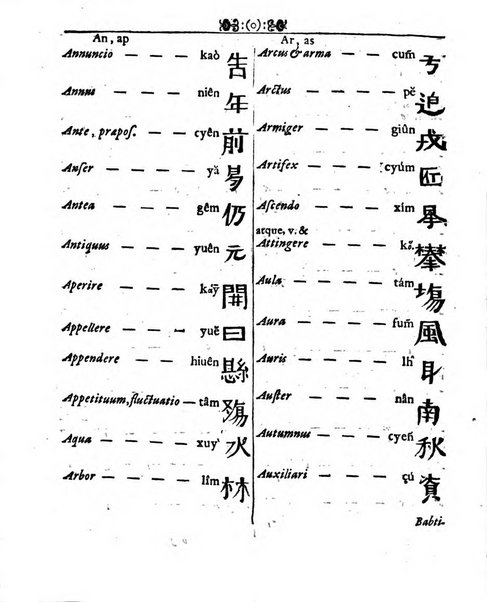 :(o):
An, ap
Annuncio — — — kaò 告
Annus — — — — niên 年
Ante, præpos. — — cyên 前
Anser — — — — yă 易
Antea — — — — gêm 仍
Antiquus — — — yuên 元
Aperire — — — kay̆ 開
Appellere — — — yuĕ 曰
Appendere — — — hiuên 縣
Appetituum, fluctuatio — tâm
Aqua — — — — xuy 水
Arbor — — — — lîm 林
Ar, as
Arcus & arma — — cum̄ 弓
Arctus — — — — pĕ 迫
Armiger — — — giûn 戎
Artifex — — — cyúm 匠
Ascendo — — — xím
atque, v. &
Attingere — — — — 攀
Aula — — — — tám 塲
Aura — — — — fum̄ 風
Auris — — — — lh 耳
Auster — — — — nân 南
Autumnus — — — cyen̄ 秋
Auxiliari — — — çú 資
Babti-